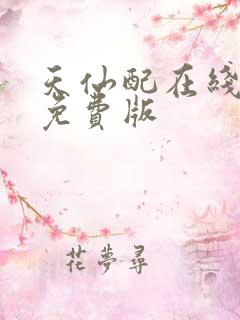 天仙配在綫
免費版
花夢尋